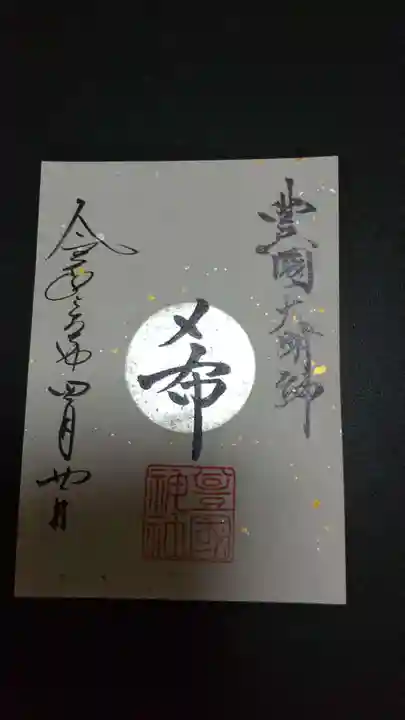 豊國大明神
希
令和三年四月廿日
豊國神社